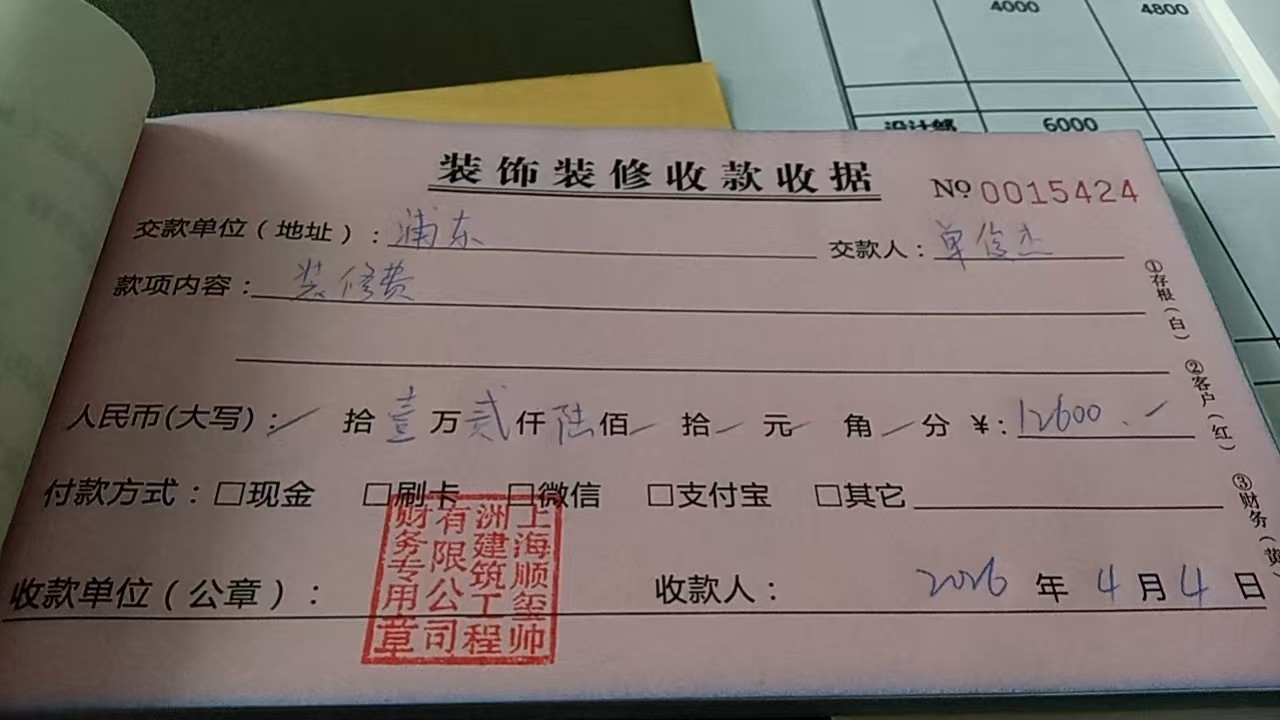 4000 4800
设计部 6000
装饰装修收款收据 No 0015424
交款单位(地址): 浦东 交款人: 单俊杰
款项内容: 装修费
人民币(大写): / 拾 壹 万 贰 仟 陆 佰 / 拾 / 元 / 角 / 分 ¥: 12600. /
付款方式: □现金 □刷卡 □微信 □支付宝 □其它
收款单位(公章): 收款人: 2026 年 4 月 4 日
上海顺玺帅
洲建筑工程
有限公司
财务专用章
①存根(白)
②客户(红)
③财务(黄